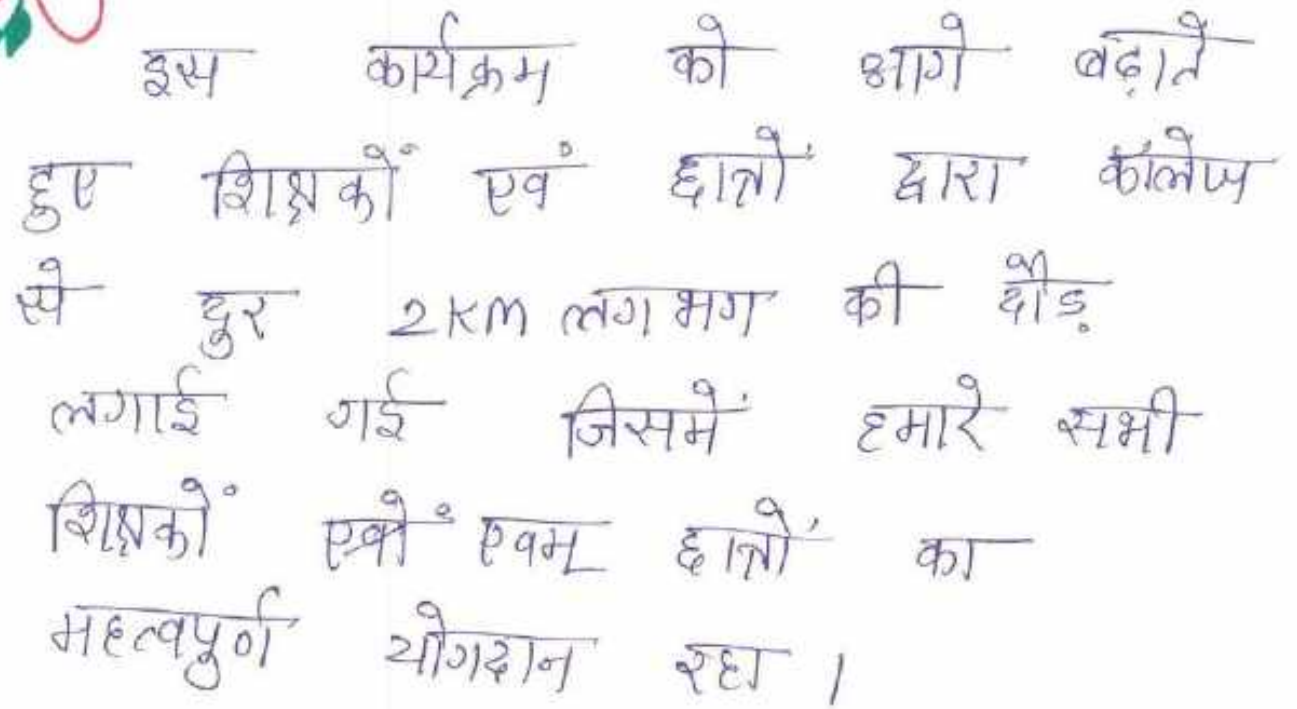 इस कार्यक्रम को आगे बढ़ाते
हुए शिक्षकों एवं छात्रों द्वारा कॉलेज
से दुर 2KM लगभग की दौड़
लगाई गई जिसमें हमारे सभी
शिक्षकों एवम् छात्रों का
महत्वपुर्ण योगदान रहा ।